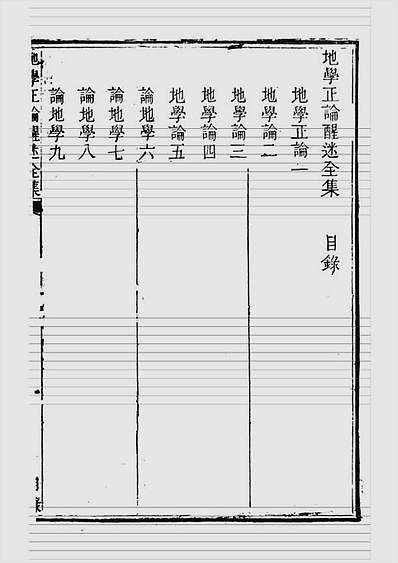 地學正論醒迷全集 目錄
地學正論一
地學論二
地學論三
地學論四
地學論五
論地學六
論地學七
論地學八
論地學九
地學正論醒迷全集
目錄